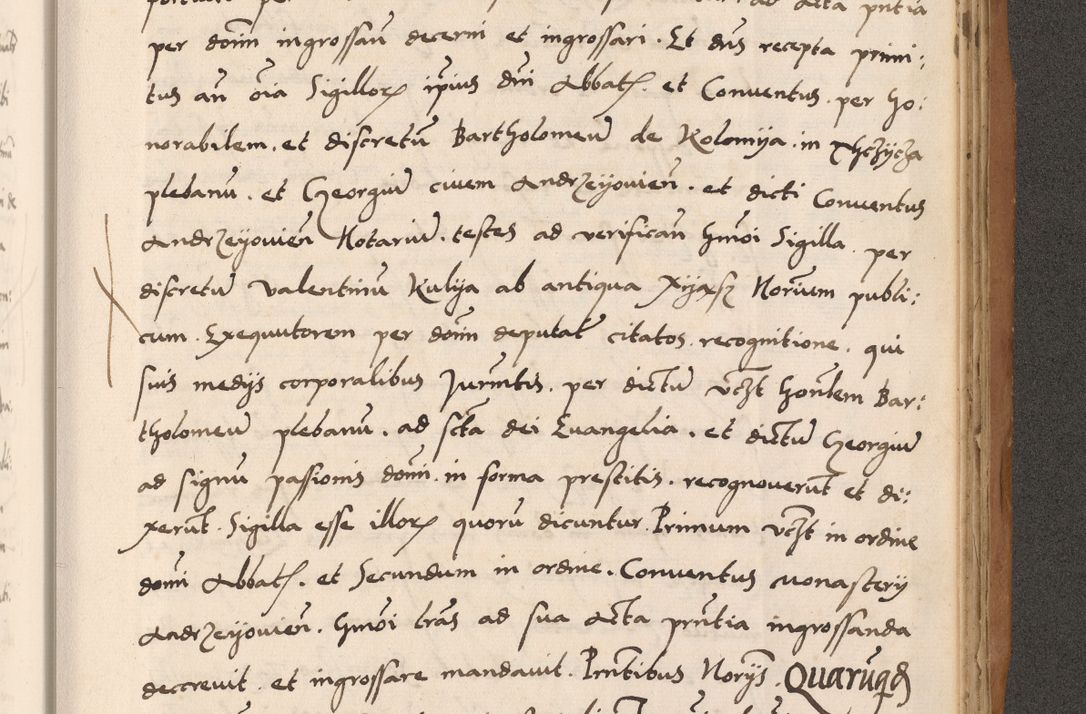 per dom̄ ingrossaū decerni et ingrossari. Et dn̄s recepta primi:
tus an̄ oīa Sigillorꝝ ip̄ius dn̄i Abbatꝭ. et Conuentus. per ho:
norabilem. et discretū Bartholomeū de Kolomija. in
plebanū. et Georgiū ciuem Andrzeyouień. et dicti Conuentus
Andrzeyouień Notariū. testes ad verificań hmōi Sigilla. per
discretū Valentinū Kulija ab antiqua Norīum publi:
cum. Exequutorem per dom̄ deputat̄ citatos. recognitione. qui
suis medijs corporalibus Jurm̄tis. per dictū vcꝫt honl̄em Bar:
tholomeū plebanū. ad sctā dei Euangelia. et dictū Georgiū
ad signū passionis domī. in forma prestitis. recognouerūt et di:
xerūt. Sigilla esse illorꝝ quorū dicuntur. Primum vcꝫt in ordine
domī Abbatꝭ. et Secundum in ordine. Conuentus monasterij
Andrzeyouień. hmōi lrās ad sua Acta prn̄tia ingrossanda
decreuit. et ingrossare mandauit. Prn̄tibus Norijs. Quarūqꝫ